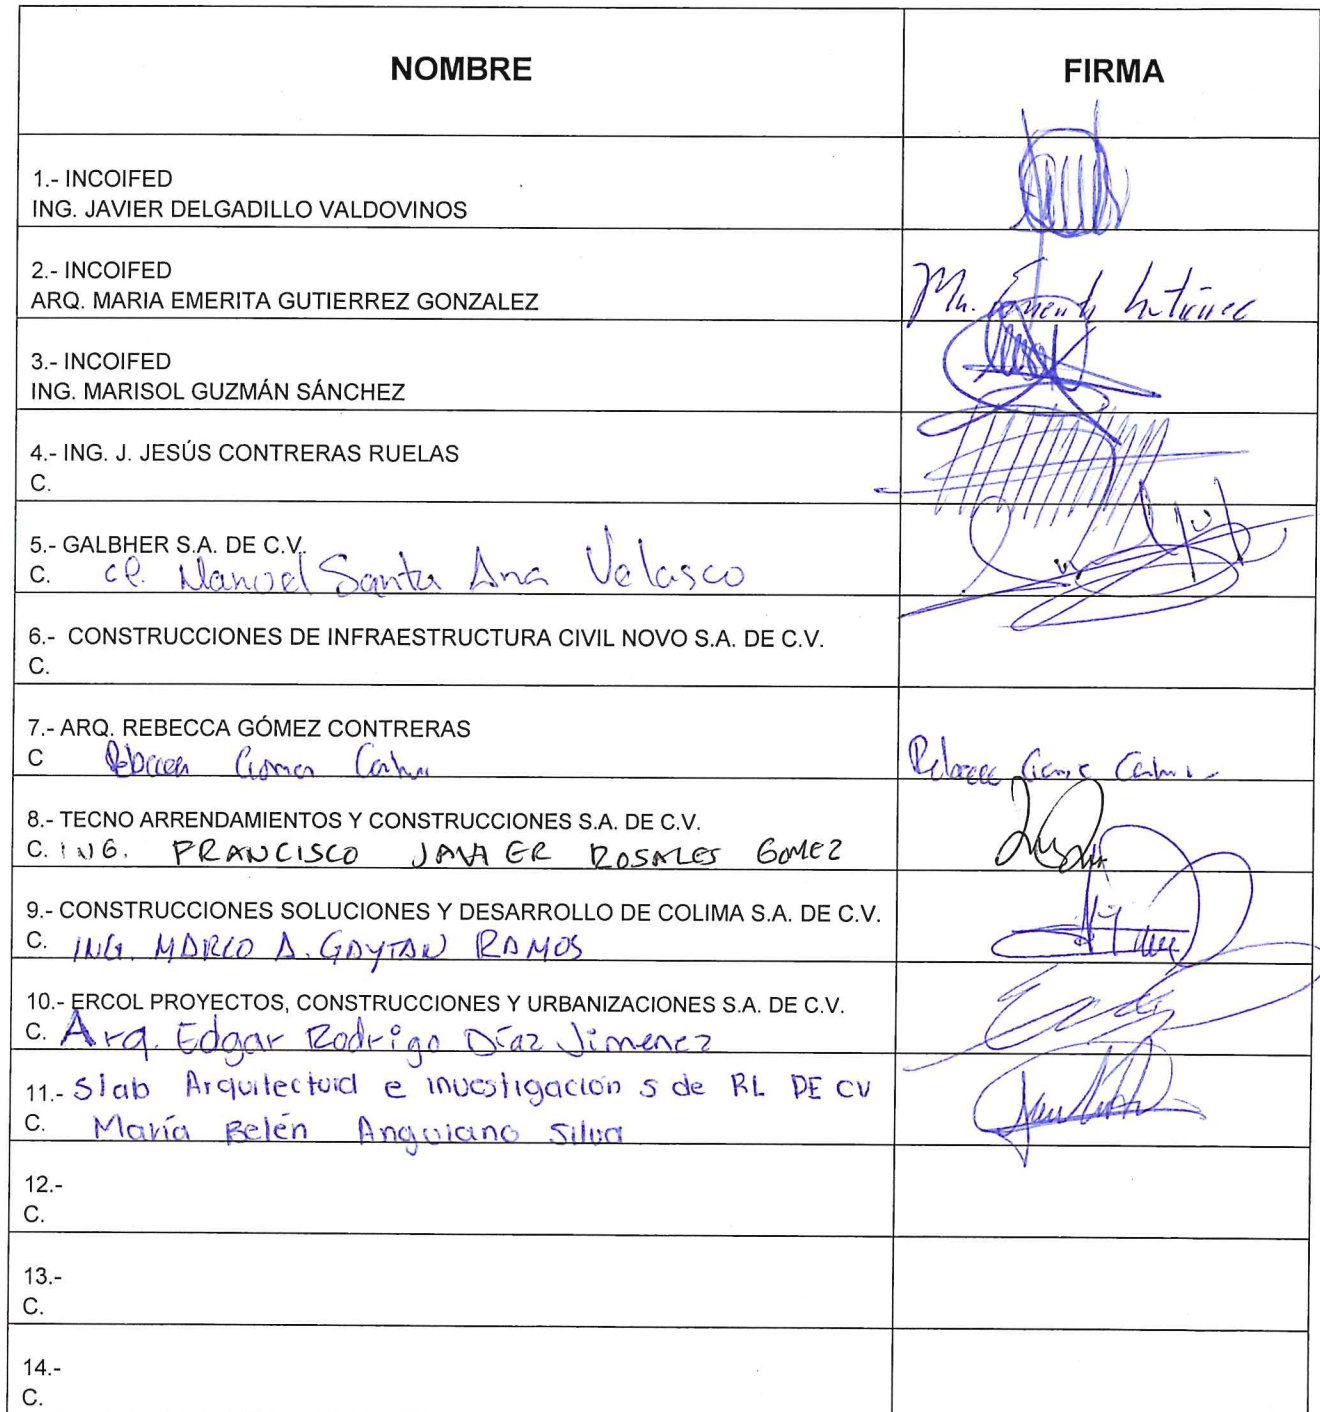 NOMBRE FIRMA
1.- INCOIFED
ING. JAVIER DELGADILLO VALDOVINOS
2.- INCOIFED
ARQ. MARIA EMERITA GUTIERREZ GONZALEZ
Ma. Emerita Gutiérrez
3.- INCOIFED
ING. MARISOL GUZMÁN SÁNCHEZ
4.- ING. J. JESÚS CONTRERAS RUELAS
C.
5.- GALBHER S.A. DE C.V.
C. CP. Manuel Santa Ana Velasco
6.- CONSTRUCCIONES DE INFRAESTRUCTURA CIVIL NOVO S.A. DE C.V.
C.
7.- ARQ. REBECCA GÓMEZ CONTRERAS
C Rebecca Gomez
Rebecca
8.- TECNO ARRENDAMIENTOS Y CONSTRUCCIONES S.A. DE C.V.
C. ING. FRANCISCO JAVIER ROSALES GOMEZ
9.- CONSTRUCCIONES SOLUCIONES Y DESARROLLO DE COLIMA S.A. DE C.V.
C. ING. MARCO A. GAYTAN RAMOS
10.- ERCOL PROYECTOS, CONSTRUCCIONES Y URBANIZACIONES S.A. DE C.V.
C. Arq. Edgar Rodrigo Díaz Jimenez
11.- Slab Arquitectura e investigación s de RL DE CV
C. María Belén Anguiano Silva
12.-
C.
13.-
C.
14.-
C.